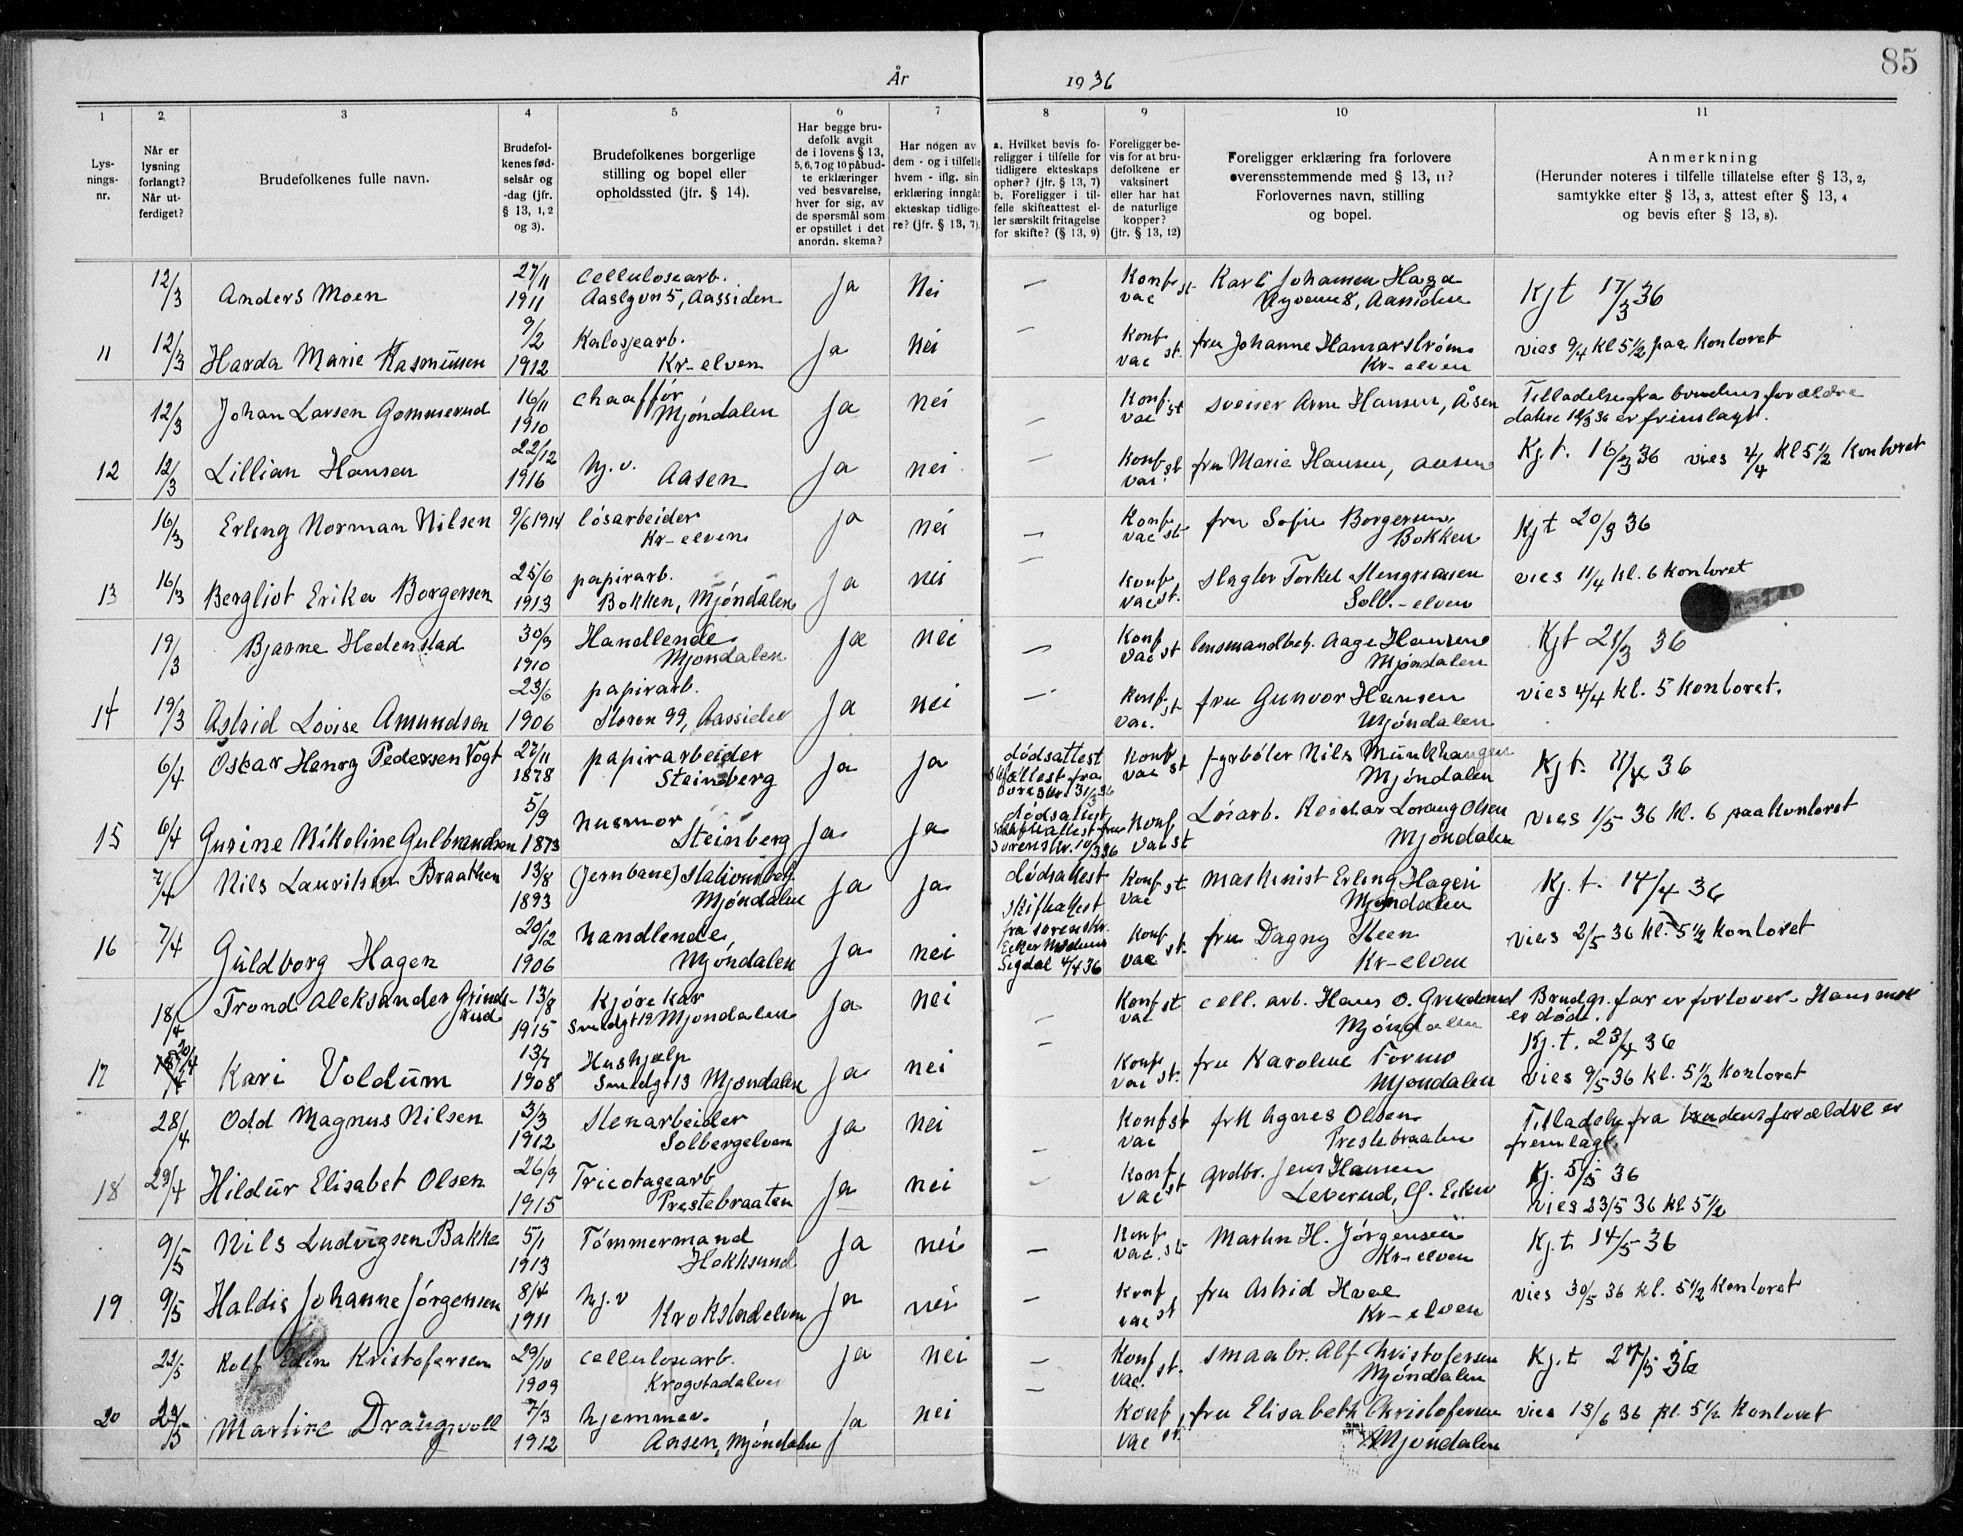 85
År 1936
1 2 3 4 5 6 7 8 9 10 11
Lys-
nings-
nr.
Når er
lysning
forlangt?
Når ut-
ferdiget?
Brudefolkenes fulle navn.
Brudefol-
kenes fød-
selsår og
-dag (jfr.
§ 13, 1, 2
og 3).
Brudefolkenes borgerlige
stilling og bopel eller
opholdssted (jfr. § 14).
Har begge bru-
defolk avgit
de i lovens § 13,
5, 6, 7 og 10 påbud-
te erklæringer
ved besvarelse,
hver for sig, av
de spørsmål som
er opstillet i det
anordn. skema?
Har nogen av
dem - og i tilfelle
hvem - iflg. sin
erklæring inngåt
ekteskap tidlige-
re? (jfr. § 13, 7).
a. Hvilket bevis fo-
religger i tilfelle for
tidligere ekteskaps
ophør? (jfr. § 13, 7)
b. Foreligger i til-
felle skifteattest el-
ler særskilt fritagelse
for skifte? (§ 13, 9)
Foreligger be-
vis for at bru-
defolkene er
vaksinert
eller har hat
de naturlige
kopper?
(jfr. § 13, 12)
Foreligger erklæring fra forlovere
overensstemmende med § 13, 11?
Forlovernes navn, stilling
og bopel.
Anmerkning
(Herunder noteres i tilfelle tillatelse efter § 13, 2,
samtykke efter § 13, 3, attest efter § 13, 4
og bevis efter § 13, 8).
12/3 Anders Moen 27/11 1911 cellulosearb. Aaslgvn 5, Aassiden Ja Nei — Konf vac st Karl Johansen Haga Aassiden Kjt 17/3 36
11 12/3 Harda Marie Rasmussen 9/2 1912 Kalosjearb. Kr-elven Ja nei — Konf vac st. fru Johanne Hamarstrøm Kr-elven vies 9/4 kl 5½ paa kontoret
12/3 Johan Larsen Gommerud 16/11 1910 chaaffør Mjøndalen Ja nei — Konf. vac st sveiser Arne Hansen, Åsen Tilladelse fra brudens forældre
datere 12/3 36 er fremlagt.
12 12/3 Lillian Hansen 22/12 1916 hj. v. Aasen Ja nei — Konf st vac. fru Marie Hansen, Aasen Kj.t. 16/3 36 vies 4/4 kl 5½ Kontoret
16/3 Erling Norman Nilsen 9/6 1914 løsarbeider Kr-elven Ja nei — Konf. vac st. fru Sofie Borgersen, Bokken Kjt 20/3 36
13 16/3 Bergliot Erika Borgersen 25/6 1913 papirarb. Bokken, Mjøndalen Ja nei — Konf vac st. slagter Torkel Solb.-elven vies 11/4 kl. 6 kontoret
19/3 Bjarne Hedenstad 30/3 1910 Handlende Mjøndalen Ja nei — Konf vac st lensmandbetj. Aage Hansen Mjøndalen Kjt 21/3 36
14 19/3 Astrid Lovise Amundsen 23/6 1906 papirarb. Storon 99, Aassiden Ja nei — Konf. vac. st fru Gunvor Hansen Mjøndalen vies 4/4 kl. 5 kontoret.
6/4 Oskar Henry Pedersen Vogt 27/11 1878 papirarbeider Steinberg Ja Ja dødsattest skifteattest fra sorenskr. 31/3 36 Konf vac st fyrbøter Nils Munkhaugen Mjøndalen Kjt. 11/4 36
15 6/4 Gurine Nikoline Gulbrandsen 5/9 1873 husmor Steinberg Ja Ja dødsattest skifteattest fra sorenskr. 10/3 36 Konf vac st Løsarb. Reidar Lorang Olsen Mjøndalen vies 1/5 36 kl. 6 paa kontoret
7/4 Nils Lauritsen Braathen 13/8 1893 (jernbane) Stationsbetj. Mjøndalen Ja Ja dødsattest skifteattest fra sorenskr. Eiker Modum Sigdal 4/4 36 Konf st vac maskinist Erling Hagen Mjøndalen Kj.t. 14/4 36
16 7/4 Guldborg Hagen 20/12 1906 handlende Mjøndalen Ja nei Konf st. vac fru Dagny Steen Kr-elven vies 2/5 36 kl. 5½ kontoret
18/4 Trond Aleksander Grinde-
rud 13/8 1915 Kjørekar Smedgt 12 Mjøndalen Ja nei — Konf st vac cell. arb. Hans O. Grinderud Mjøndalen Brudgs. far er forlover - Hans mor
er død.
Kj.t. 23/4 36
17 20/4 Kari Voldum 13/7 1908 Hushjelp Smedgt 13 Mjøndalen Ja nei — Konf vac st. fru Karoline Formo Mjøndalen vies 9/5 36 kl. 5½ kontoret
28/4 Odd Magnus Nilsen 3/3 1912 Stenarbeider Solbergelven Ja nei — Konf st vac frk Agnes Olsen Prestebraaten Tilladelse fra brudens forældre er
fremlagt.
18 29/4 Hildur Elisabet Olsen 26/9 1915 Tricotagearb Prestebraaten Ja nei — Konf. vac st grdbr. Jens Hansen Leverud, Ø. Eiker Kj. 5/5 36
vies 23/5 36 kl 5½
9/5 Nils Ludvigsen Bakke 5/1 1913 Tømmermand Hokksund Ja nei — Konf vac. st. Martin H. Jørgensen Kr-elven Kj.t 14/5 36
19 9/5 Haldis Johanne Jørgensen 8/4 1911 hj.v Krokstadelven Ja nei — Konf vac st fru Astrid Hval Kr-elven vies 30/5 36 kl. 5½ Kontoret
22/5 Rolf Edin Kristofersen 29/10 1909 cellulosearb. Krogstadelven Ja nei — Konf st. vac. smaabr. Alf Christofersen Mjøndalen Kj.t 27/5 36
20 22/5 Martine Drangvoll 7/3 1912 hjemmev. Aasen, Mjøndalen Ja nei — Konf vac st. fru Elisabeth Christofersen Mjøndalen vies 13/6 36 kl. 5½ Kontoret